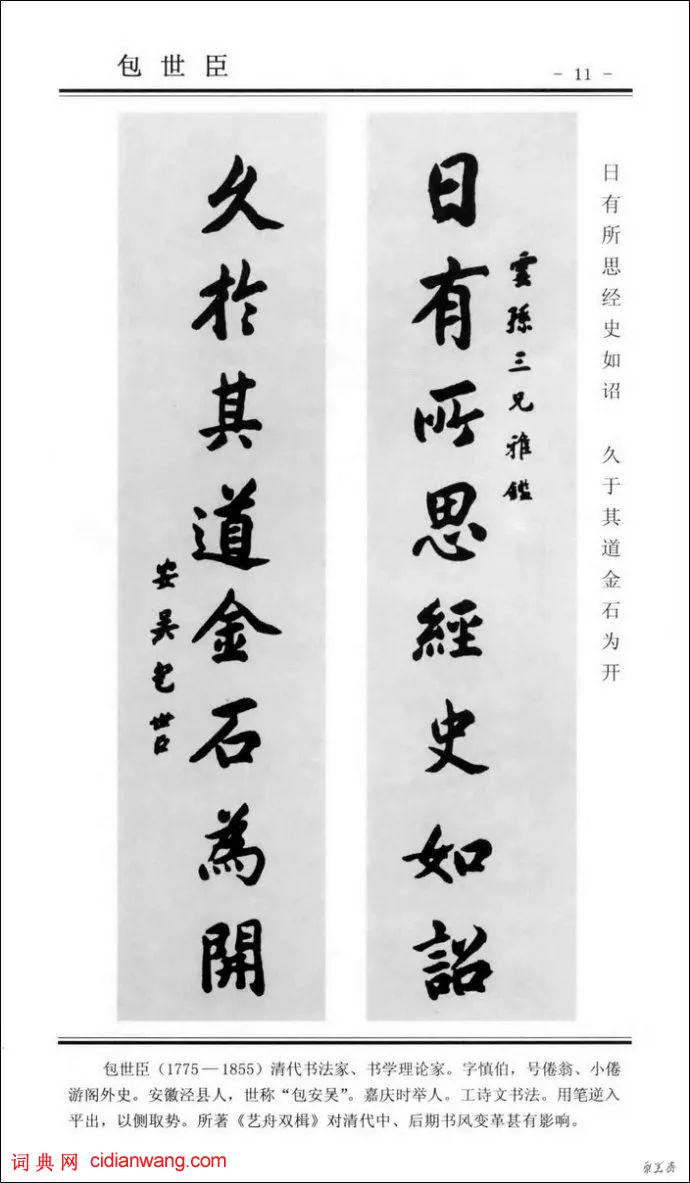 包世臣
- 11 -
日有所思经史如诏 久于其道金石为开
雲孫三兄雅鑑
日有所思經史如詔
久於其道金石為開
安吴包世臣
包世臣（1775—1855）清代书法家、书学理论家。字慎伯，号倦翁、小倦
游阁外史。安徽泾县人，世称“包安吴”。嘉庆时举人。工诗文书法。用笔逆入
平出，以侧取势。所著《艺舟双楫》对清代中、后期书风变革甚有影响。
词典网 cidianwang.com